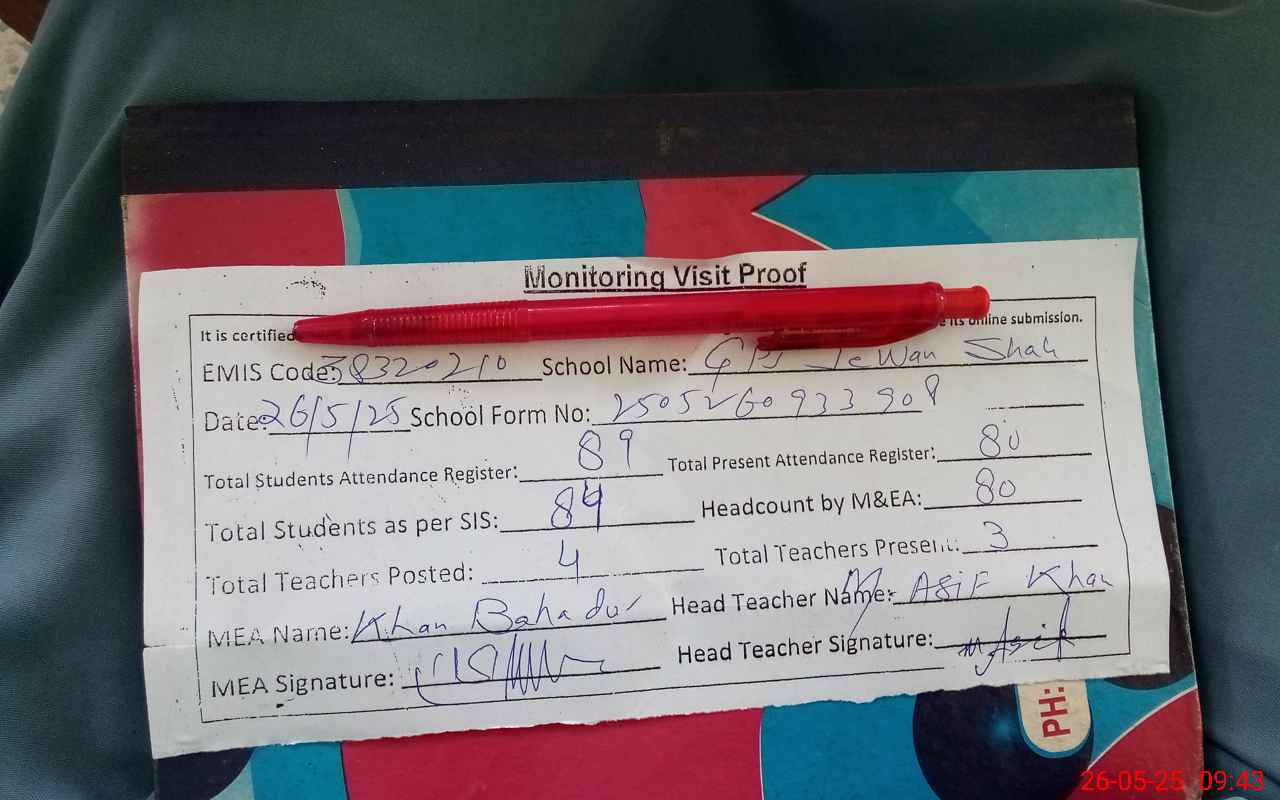 Monitoring Visit Proof
It is certified its online submission.
EMIS Code: 38320210 School Name: GPS Jewan Shah
Date: 26/5/25 School Form No: 2505260933908
Total Students Attendance Register: 89 Total Present Attendance Register: 80
Total Students as per SIS: 84 Headcount by M&EA: 80
Total Teachers Posted: 4 Total Teachers Present: 3
MEA Name: Khan Bahadur Head Teacher Name: M Asif Khan
MEA Signature: Head Teacher Signature: M Asif
PH:
26-05-25 09:43